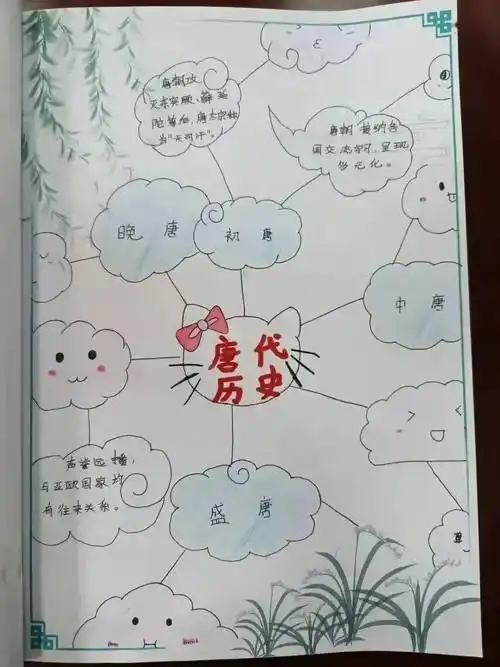 唐朝攻
灭东突厥、薛延
陀等后，唐太宗被称
为“天可汗”。
唐朝接纳各
国交流学习，呈现
多元化。
晚唐
初唐
中唐
唐代
历史
声誉远播，
与亚欧国家均
有往来关系。
盛唐